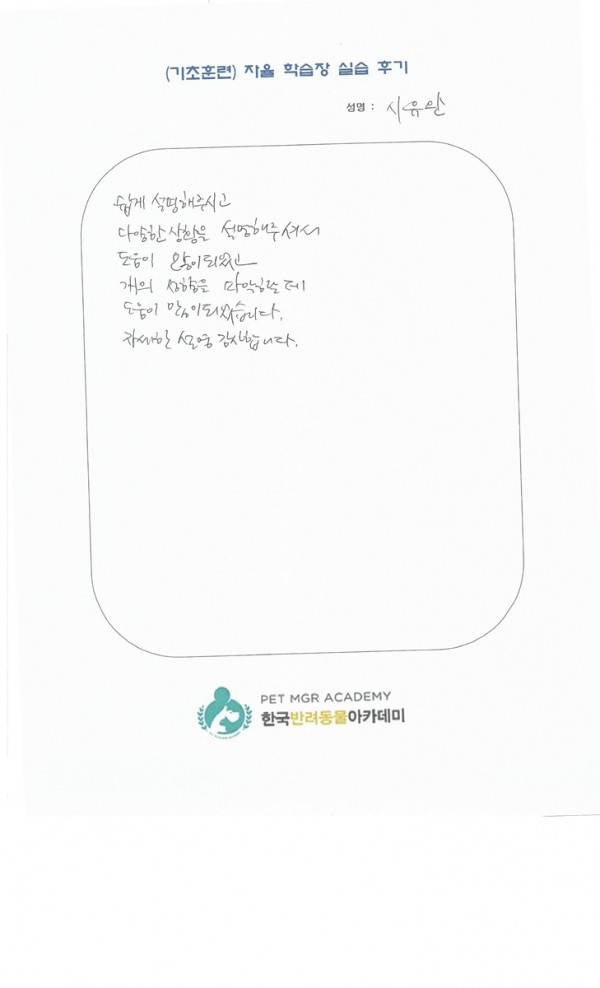 (기초훈련) 자율 학습장 실습 후기
성명 : 시유안
쉽게 설명해주시고
다양한 상황을 설명해주셔서
도움이 많이되었고
개의 성향을 파악하는데
도움이 많이되었습니다.
자세한 설명 감사합니다.
PET MGR ACADEMY
한국반려동물아카데미